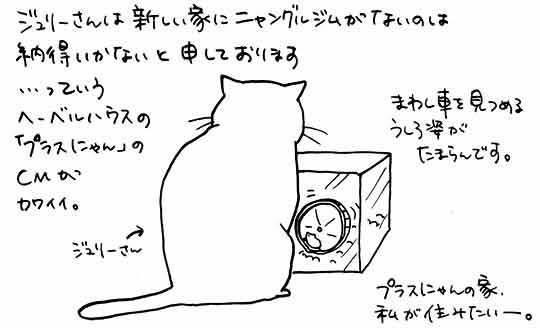 ジュリーさんは新しい家にニャングルジムがないのは
納得いかないと申しております
…っていう
ヘーベルハウスの
「プラスにゃん」の
CMが
カワイイ。
まわし車を見つめる
うしろ姿が
たまらんです。
ジュリーさん
プラスにゃんの家、
私が住みたいー。